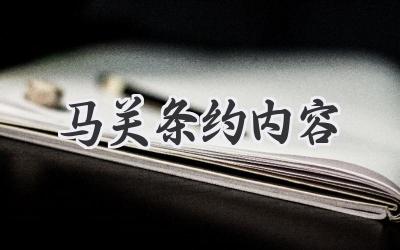 马关条约内容